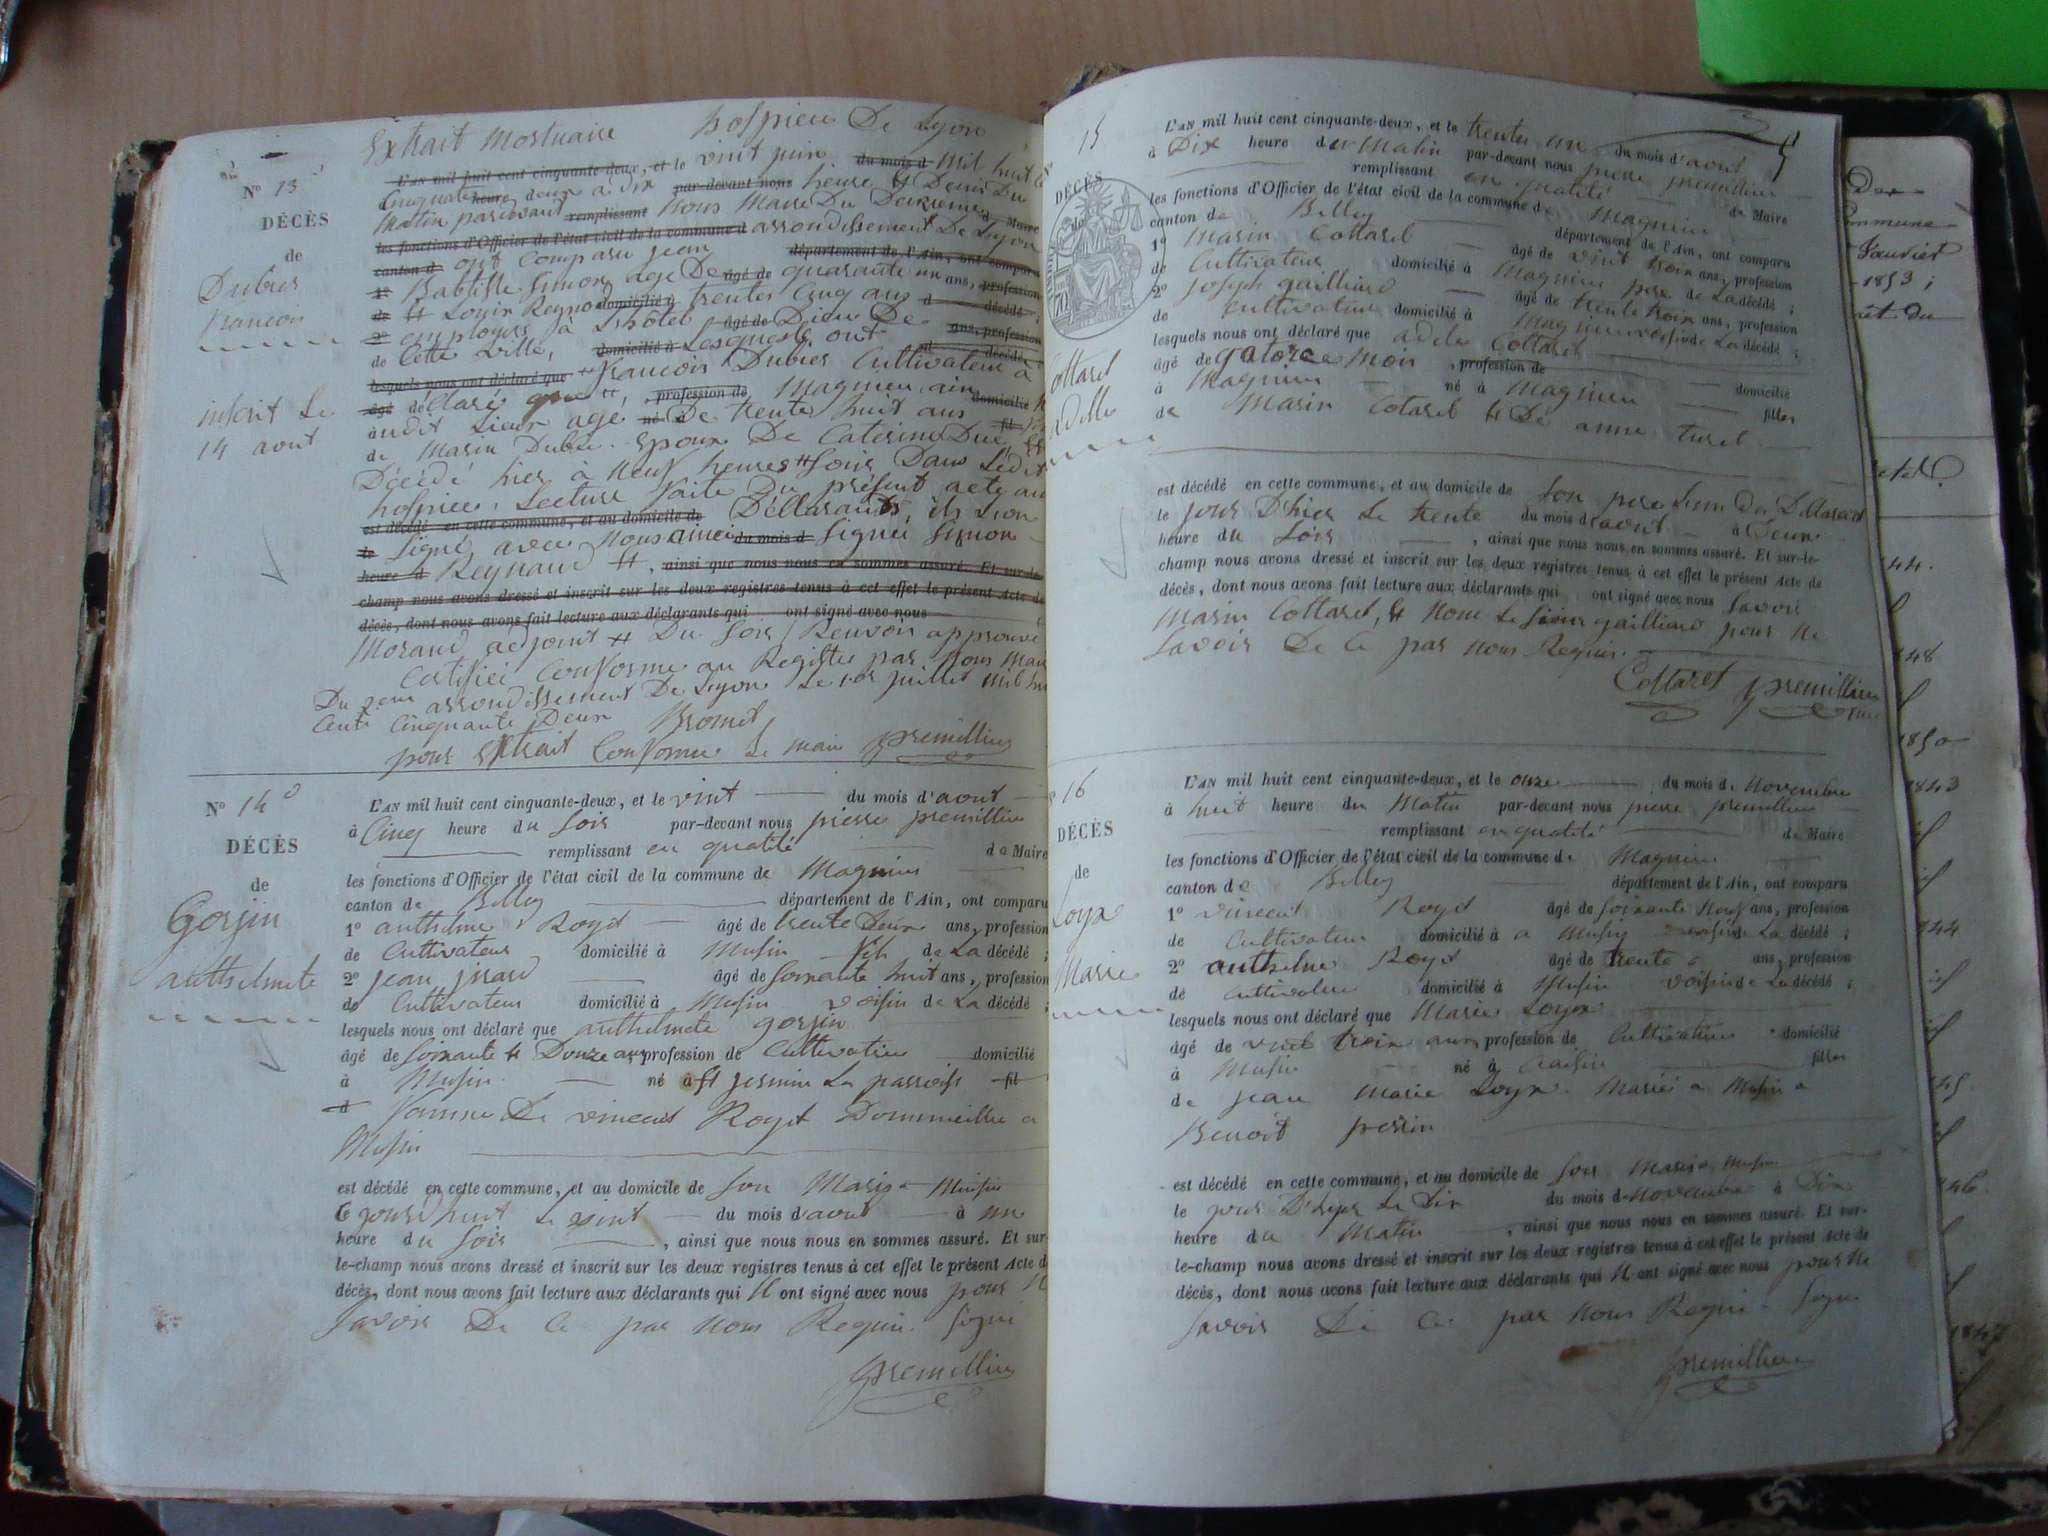 Extrait mortuaire hospice De Lyon
N° 13
DÉCÈS
de
Dubies
francois
inscrit Le
14 aout
L'AN mil huit cent cinquante-deux, et le vint juin du mois d mil huit
cinquate heure deux à dix par-devant nous heure et Demi Du
Matin pardevant remplissant Nous Maire Du Deuxieme Maire
les fonctions d'Officier de l'état civil de la commune d arrondissement De Lyon
canton d ont comparu jean département de l'Ain, ont comparu
1° Babtiste Simon age De âgé de quarante un ans, profession
de et Louis Reyno domicilié à trente Cinq ans d décédé ;
2° employers à L'hôtel âgé de Dieu De ans, profession
de Cette ville, domicilié à Lesquels ont décédé
lesquels nous ont déclaré que francois Dubies Cultivateur à
âgé déclaré que, profession de Magnieu ain domicilié
audit Lieux age né à De trente huit ans fil
de Marin Dubie. Epoux De Caterine Duc
Décédé hier à Neuf heures Soir Dans Ledit
hospice, Lecture faite Du présent acte au
est décédé en cette commune, et au domicile de Déclarants, ils L'on
le Signé avec Nous ainci du mois d Signé Simon
heure d Reynaud, ainsi que nous nous en sommes assuré. Et sur-le-
champ nous avons dressé et inscrit sur les deux registres tenus à cet effet le présent Acte de
décès, dont nous avons fait lecture aux déclarants qui ont signé avec nous
Morand adjoint Du Soir Renvoir approuvé
Certifiée Conforme au Registre par Nous Maire
Du 2eme arrondissement De Lyon Le 1er juillet mil
Cent Cinquante Deux
pour Extrait Conforme Le maire premillieu
N° 14
DÉCÈS
de
Gorjin
anthelmete
L'AN mil huit cent cinquante-deux, et le vint du mois d'aout
à Cinq heure du Soir par-devant nous pierre premillieu
remplissant en qualité de Maire
les fonctions d'Officier de l'état civil de la commune de Magnieu
canton de Belley département de l'Ain, ont comparu
1° anthelme Royet âgé de trente Deux ans, profession
de Cultivateur domicilié à Musin fils de La décédé ;
2° jean âgé de Soixante huit ans, profession
de Cultivateur domicilié à Musin voisin de La décédé ;
lesquels nous ont déclaré que anthelmete gorjin
âgé de Soixante et Douze ans profession de Cultivatrice domicilié
à Musin né à St jermin La parroiss fil
d famme De vincent Royet Dommeillie a
Musin
est décédé en cette commune, et au domicile de Son Maris a Musin
le jourd huit Le vint du mois d'aout à une
heure du Soir, ainsi que nous nous en sommes assuré. Et sur-
le-champ nous avons dressé et inscrit sur les deux registres tenus à cet effet le présent Acte de
décès, dont nous avons fait lecture aux déclarants qui N ont signé avec nous pour N
Savoir De Ce par nous Requis. Signé
premillieu
15
DÉCÈS
de
Cottaret
adelle
L'AN mil huit cent cinquante-deux, et le trente un du mois d'aout
à Dix heure du Matin par-devant nous pierre premillieu
remplissant en qualité de Maire
les fonctions d'Officier de l'état civil de la commune de Magnieu
canton de Belley département de l'Ain, ont comparu
1° Marin Cottaret âgé de vint trois ans, profession
de Cultivateur domicilié à Magnieu pere de La décédé ;
2° joseph gailliard âgé de trente trois ans, profession
de Cultivateur domicilié à Magnieu voisin de La décédé ;
lesquels nous ont déclaré que adele Cottaret
âgé de gatorce mois, profession de domicilié
à Magnieu né à Magnieu filles
de Marin Cotaret et De anne turel
est décédé en cette commune, et au domicile de Son pere Lun des Dellarant
le jour D'hier Le trente du mois d'aout à Deux
heure du Soir, ainsi que nous nous en sommes assuré. Et sur-le-
champ nous avons dressé et inscrit sur les deux registres tenus à cet effet le présent Acte de
décès, dont nous avons fait lecture aux déclarants qui ont signé avec nous Savoir
Marin Cottaret, et Nous Le Sieur gailliard pour Ne
Savoir De Ce par nous Requis.
Cottaret premillieu
16
DÉCÈS
de
Loyx
Marie
L'AN mil huit cent cinquante-deux, et le onze du mois de Novembre
à huit heure du Matin par-devant nous pierre premillieu
remplissant en qualité de Maire
les fonctions d'Officier de l'état civil de la commune de Magnieu
canton de Belley département de l'Ain, ont comparu
1° vincent Royet âgé de Soixante Neuf ans, profession
de Cultivateur domicilié à a Musin voisin de La décédé ;
2° anthelme Royet âgé de trente ans, profession
de Cultivateur domicilié à Musin voisin de La décédé ;
lesquels nous ont déclaré que Marie Loyx
âgé de vint trois ans, profession de Cultivatrice domicilié
à Musin né à filles
de jean Marie Loyx. Mariée a Musin a
Benoit perrin
est décédé en cette commune, et au domicile de Son Maris a Musin
le jour D'hyer Le Dix du mois de Novembre à Dix
heure du Matin, ainsi que nous nous en sommes assuré. Et sur-
le-champ nous avons dressé et inscrit sur les deux registres tenus à cet effet le présent Acte de
décès, dont nous avons fait lecture aux déclarants qui N ont signé avec nous pour Ne
Savoir De Ce par nous Requis. Signé
premillieu
1853 ;
44.
48
1850
1843
44
45.
46.
1847